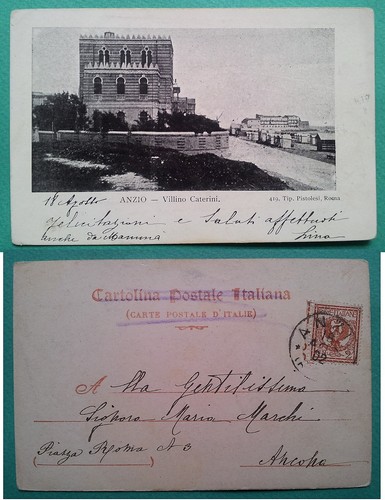 18 Agosto
ANZIO — Villino Caterini,
419. Tip. Pistolesi, Rouna
Felicitazioni e Saluti affettuosi
anche da Mamma
Lina
Cartolina Postale Italiana
(CARTE POSTALE D'ITALIE)
A Alla Gentilissima
Signora Maria Marchi
Piazza Roma N 3
Ancona